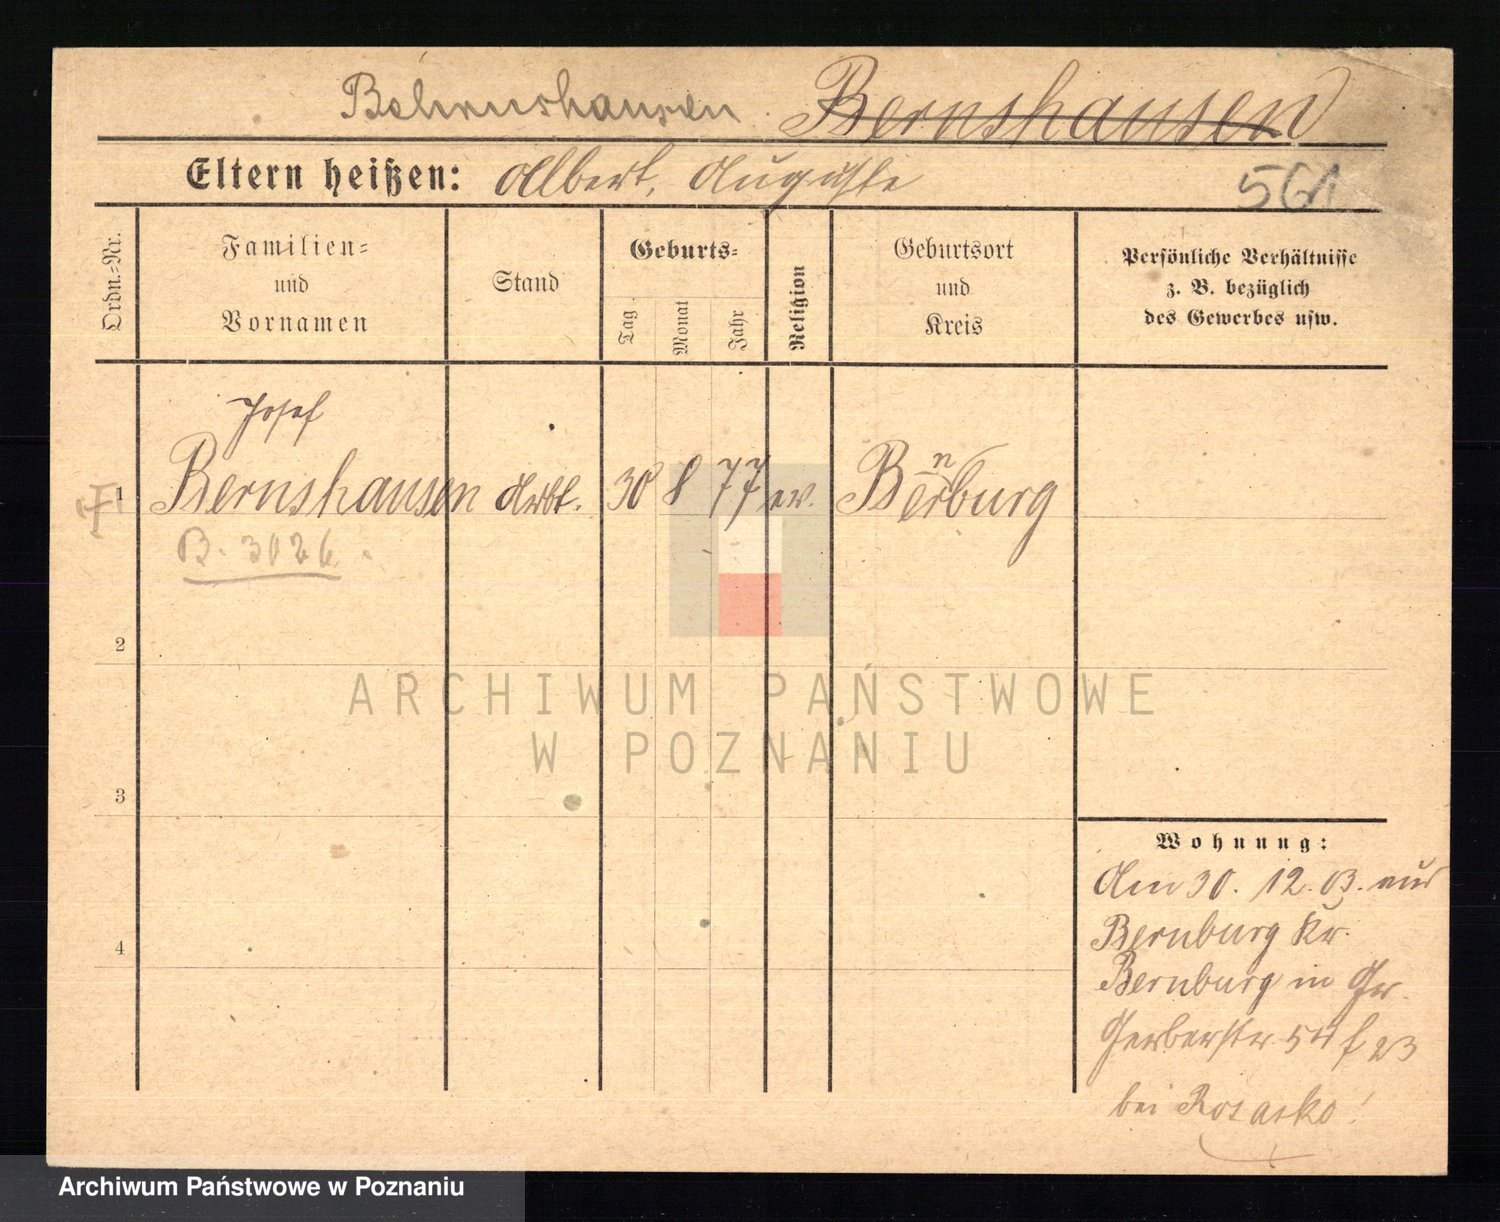 Behrnshausen. Bernshausen
Eltern heißen: Albert, Auguste
561
Ordn.-Nr.
Familien- und Vornamen
Stand
Geburts-
Tag
Monat
Jahr
Religion
Geburtsort und Kreis
Persönliche Verhältnisse
z. B. bezüglich
des Gewerbes usw.
Josef
1 Bernshausen Arbt. 30 8 77 ev. Bernburg
B. 3026.
2
3
4
Wohnung:
Am 30. 12. 03. aus
Bernburg Kr.
Bernburg in Gr.
Gerberstr. 54
bei Rosasko!
ARCHIWUM PAŃSTWOWE
W POZNANIU
Archiwum Państwowe w Poznaniu